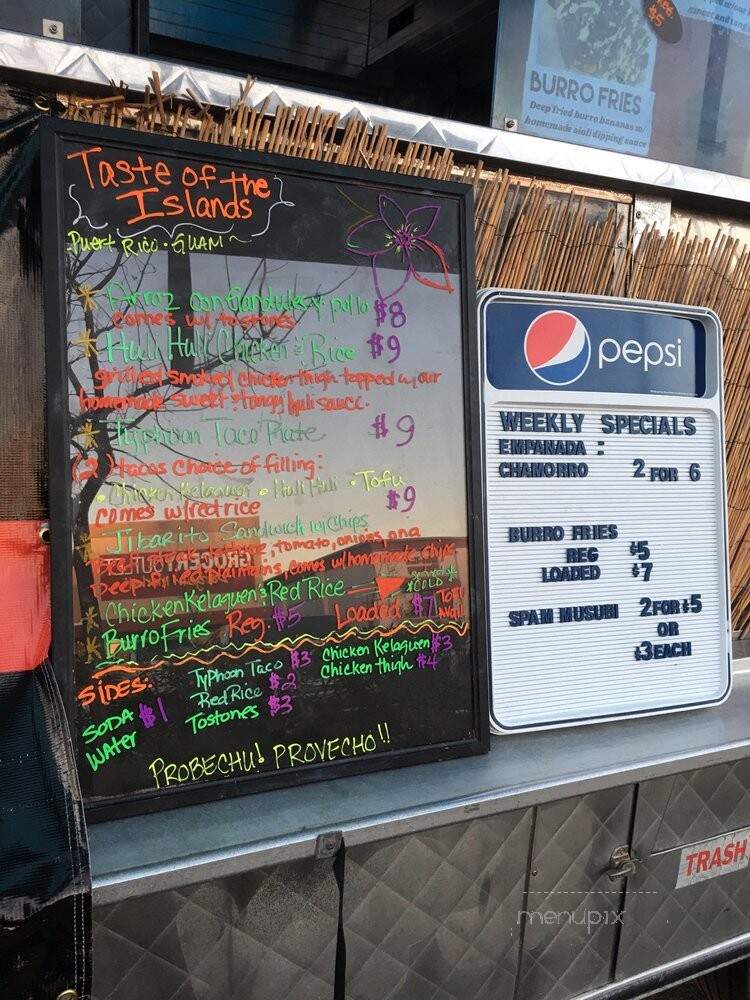 BURRO FRIES
Deep fried burro bananas w/
homemade aioli dipping sauce
$5
Taste of the
Islands
Puert Rico • GUAM ~
* Arroz con Gandules y pollo $8
comes w/ tostones
* Huli Huli Chicken & Rice $9
grilled smoked chicken thigh topped w/ our
homemade sweet & tangy huli sauce.
* Typhoon Taco Plate $9
(2) tacos choice of filling:
• Chicken Kelaguen • Huli Huli • Tofu
comes w/ red rice $9
* Jibarito Sandwich w/ Chips
lettuce, Tomato, onions, on a
Deep fried plantains, comes w/ homemade chips
* Chicken Kelaguen & Red Rice
*COLD*
* Burro Fries Reg $5 Loaded $7 TOFU
AVAIL
SIDES:
Typhoon Taco $3
Red Rice $2
Tostones $3
Chicken Kelaguen $3
Chicken thigh $4
SODA $1
Water
PROBECHU! PROVECHO!!
pepsi
WEEKLY SPECIALS
EMPANADA :
CHAMORRO 2 FOR 6
BURRO FRIES
REG $5
LOADED $7
SPAM MUSUBI 2 FOR $5
OR
$3 EACH
TRASH
menupix